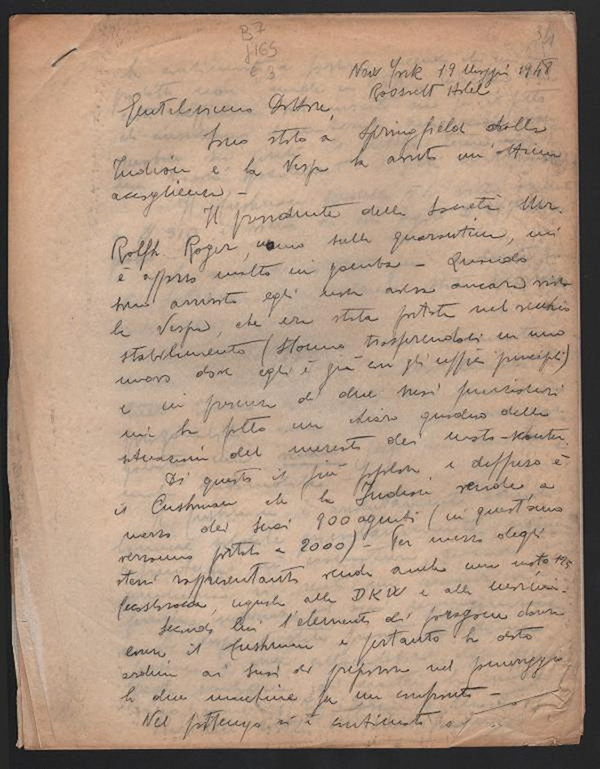 B7
J165
c, 3
34
New York 19 Maggio 1948
Roosvelt Hotel
Gentilissimo Dottore,
Sono stato a Springfield dalla
Indian e la Vespa ha avuto un'ottima
accoglienza -
Il presidente della Società Mr.
Rolph Roger, uomo sulla quarantina, mi
è apparso molto in gamba - Quando
sono arrivato egli non aveva ancora visto
la Vespa, che era stata portata nel vecchio
stabilimento (stanno trasferendosi in uno
nuovo dove egli è già con gli uffici principali)
e in presenza di due suoi funzionari
mi ha fatto un chiaro quadro della
situazione del mercato dei moto-scooter.
Di questi il più popolare e diffuso è
il Cushman che la Indian vende a
mezzo dei suoi 900 agenti (in quest'anno
verranno portati a 2000) - Per mezzo degli
stessi rappresentanti vende anche una moto 125
uguale alla DKW e alla
Secondo lui l'elemento di paragone deve
essere il Cushman e pertanto ha dato
ordine ai suoi di preparare nel pomeriggio
le due macchine per un confronto -
Nel frattempo si è continuato a